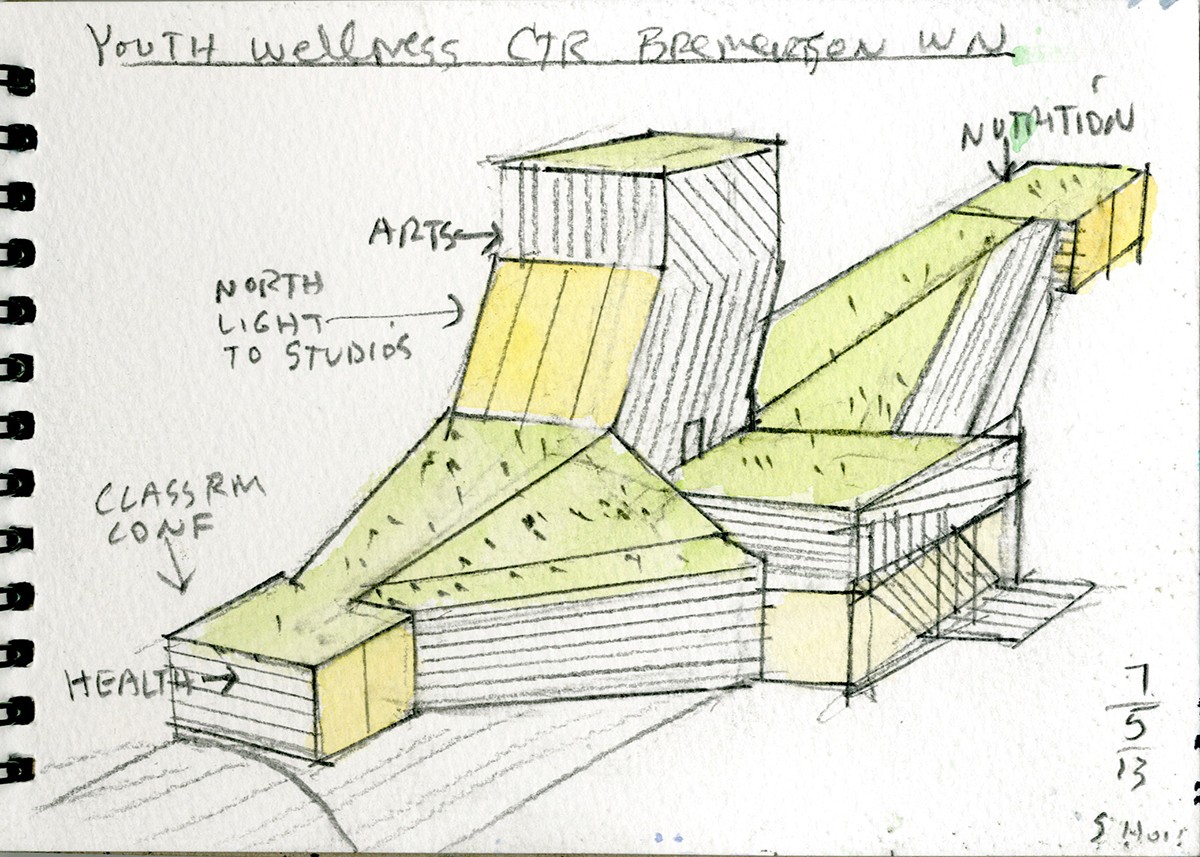 YOUTH Wellness CTR Bremerton WN
NUTRITION
ARTS
NORTH
LIGHT
TO STUDIOS
CLASSRM
CONF
HEALTH
7
5
13